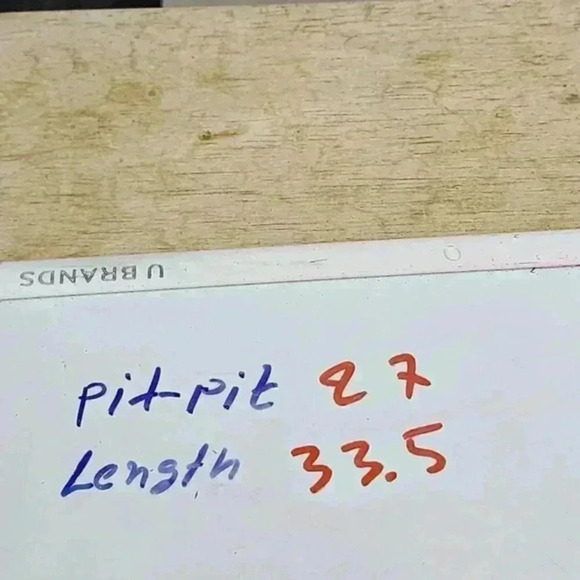 U BRANDS
Pit-Pit 27
Length 33.5